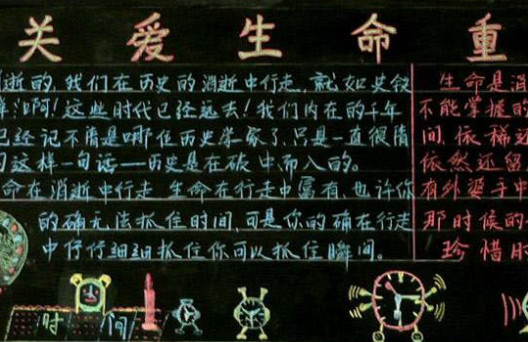 关爱生命重
消逝的,我们在历史的消逝中行走,就如英钗
啊!这些时代已经远去!我们内在的千年
已经记不清是哪位历史学家了,只是一直很清
这样一句话——历史是在破中而入的。
命在消逝中行走 生命在行走中富有,也许你
的确无法抓住时间,可是你的确在行走
中仔仔细细抓住你可以抓住瞬间。
生命是消
不能掌握时
间,依稀还
依然还留
有外婆手中
那时候的
珍惜时
时间